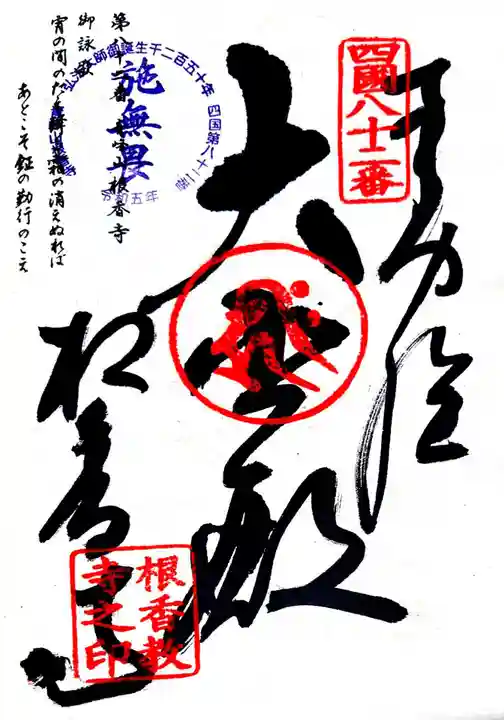 四國八十二番
千手尊
大悲殿
根香寺
根香教
寺之印
第八十二番 青峰山根香寺
御詠歌
宵の間のたえふる霜の消えぬれば
あとこそ鉦の勤行のこえ
施無畏
師御誕生千二百五十年 四国第八十二番
令和五年